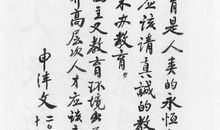 育是人类的永恒
应该请真诚的教
来办教育。
主义教育环境出
养高层次人才应该
申泮文 二〇
十